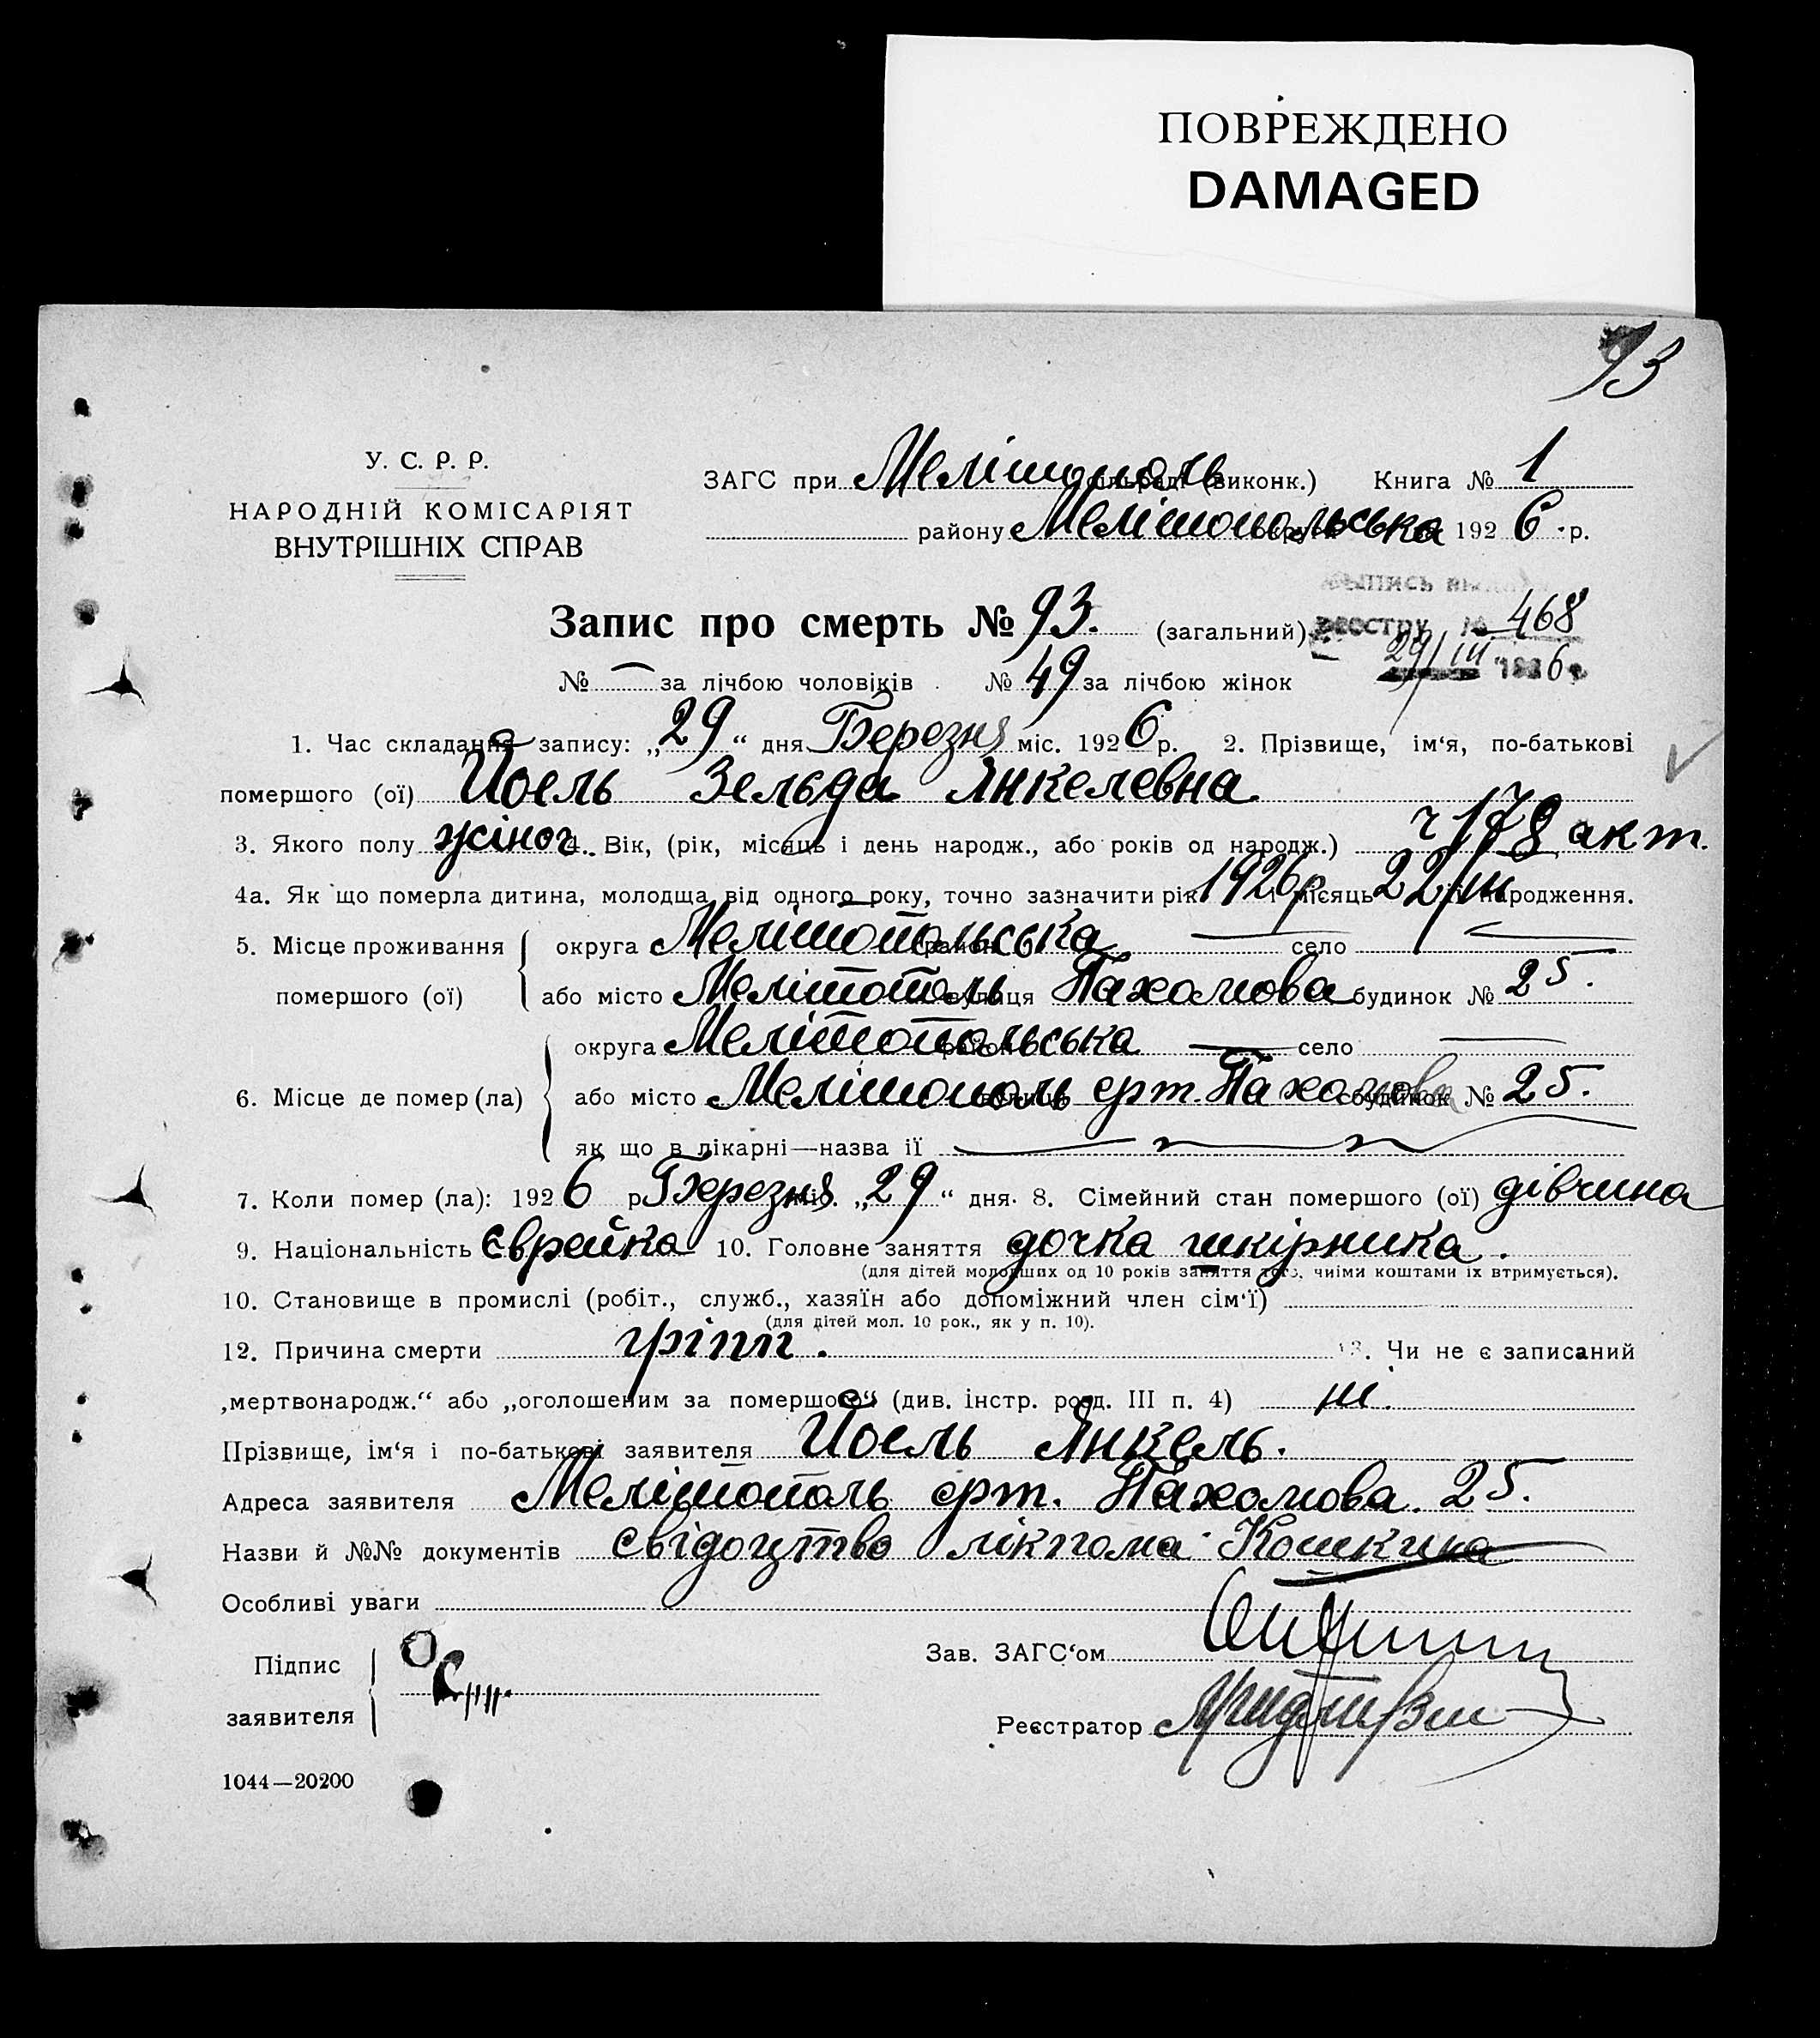 ПОВРЕЖДЕНО
DAMAGED
93
У. С. Р. Р.
НАРОДНІЙ КОМІСАРІЯТ
ВНУТРІШНІХ СПРАВ
ЗАГС при Мелітополь сільраді (виконк.) Книга № 1
району Мелітопольська 1926 р.
Запис про смерть № 93. (загальний)
реєстру № 468
29/III 1926 г
№ — за лічбою чоловіків № 49 за лічбою жінок
1. Час складання запису: „29“ дня Березня міс. 1926 р. 2. Прізвище, ім‘я, по-батькові
помершого (ої) Йоель Зельда Янкелевна
3. Якого полу жіноч 4. Вік, (рік, місяць і день народж., або років од народж.) ч 178 акт.
4а. Як що померла дитина, молодща від одного року, точно зазначити рік 1926 р і місяць 22/III її народження.
5. Місце проживання помершого (ої) округа Мелітопольська район — село —
або місто Мелітополь вулиця Пахомова будинок № 25.
6. Місце де помер (ла) округа Мелітопольська район — село —
або місто Мелітополь вулиця ерт. Пахомова будинок № 25.
як що в лікарні—назва ії —
7. Коли помер (ла): 1926 р Березня міс. „29“ дня. 8. Сімейний стан помершого (ої) дівчина
9. Національність Єврейка 10. Головне заняття дочка шкірника.
(для дітей молодших од 10 років заняття того, чиїми коштами їх втримується).
10. Становище в промислі (робіт., служб., хазяїн або допоміжний член сім‘ї)
(для дітей мол. 10 рок., як у п. 10).
12. Причина смерти гріпп. 13. Чи не є записаний
„мертвонародж.“ або „оголошеним за помершого“ (див. інстр. розд. III п. 4) ні.
Прізвище, ім‘я і по-батькові заявителя Йоель Янкель.
Адреса заявителя Мелітополь ерт. Пахомова 25.
Назви й №№ документів свідоцтво лікпома Кошкина
Особливі уваги
Підпис заявителя
Зав. ЗАГС‘ом
Реєстратор
1044—20200